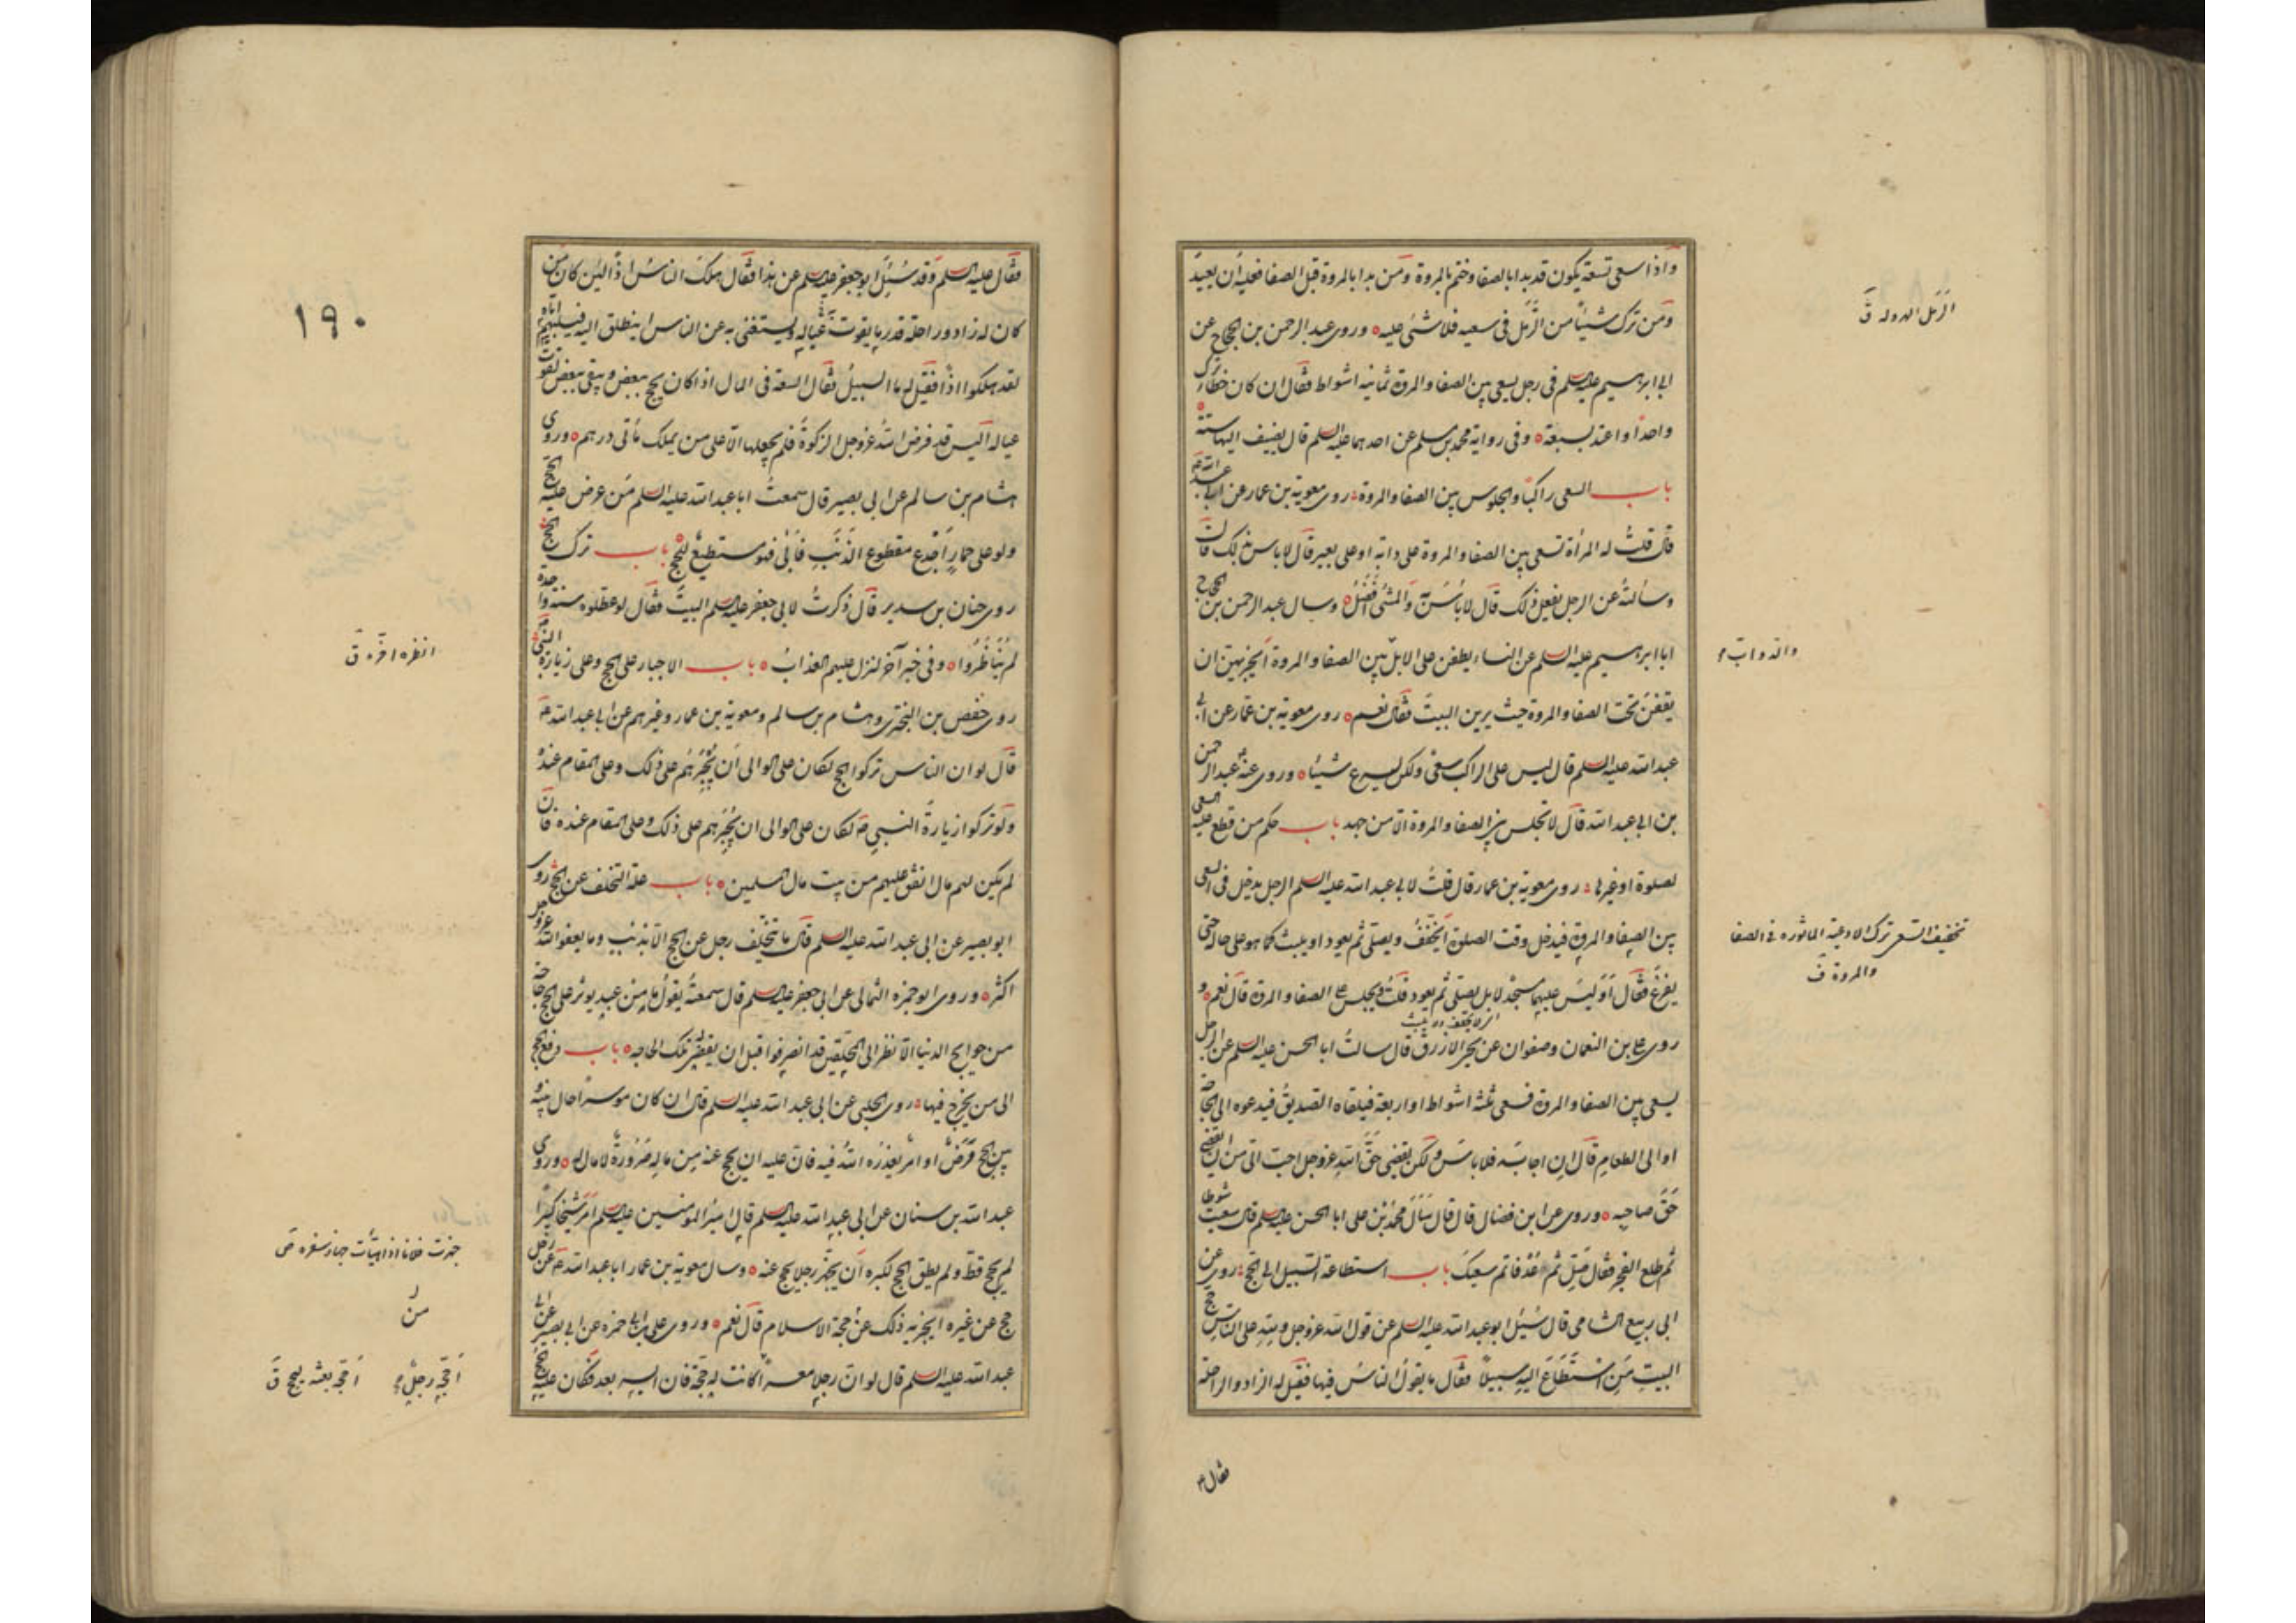 واذا سعى تسعة يكون قد بدا بالصفا وختم بالمروة ومن بدا بالمروة قبل الصفا فعليه ان يعيد
ومن ترك شيئا من الرمل فى سعيه فلا شئ عليه وروى عبد الرحمن بن الحجاج عن
ابى ابرهيم عليه السلم فى رجل يسعى بين الصفا والمروة ثمانية اشواط فقال ان كان خطأ طرح
واحدا واعتد بسبعة وفى رواية محمد بن مسلم عن احدهما عليه السلم قال يضيف اليها ستة
باب السعى راكبا والجلوس بين الصفا والمروة روى معوية بن عمار عن ابى عبد الله ع
قال قلت له المرأة تسعى بين الصفا والمروة على دابة او على بعير قال لا باس بذلك قال
وسألته عن الرجل يفعل ذلك قال لا باس به والمشى افضل وسال عبد الرحمن بن الحجاج
ابا ابرهيم عليه السلم عن النساء يطفن على الابل بين الصفا والمروة ايجزيهن ان
يقفن تحت الصفا والمروة حيث يرين البيت فقال نعم روى معوية بن عمار عن ابى
عبد الله عليه السلم قال ليس على الراكب سعى ولكن ليسرع شيئا وروى عنه عبد الرحمن
بن ابى عبد الله قال لا تجلس بين الصفا والمروة الا من جهد باب حكم من قطع عليه السعى
لصلوة او غيرها روى معوية بن عمار قال قلت لابى عبد الله عليه السلم الرجل يدخل فى السعى
بين الصفا والمروة فيدخل وقت الصلوة ايخفف ويصلى ثم يعود او يلبث كما هو على حاله حتى
يفرغ فقال او ليس عليهما مسجد لا بل يصلى ثم يعود قلت ويجلس على الصفا والمروة قال نعم و
روى على بن النعمان وصفوان عن يحيى الازرق قال سالت ابا الحسن عليه السلم عن الرجل
يسعى بين الصفا والمروة فسعى ثلثة اشواط او اربعة فيلقاه الصديق فيدعوه الى الحاجة
او الى الطعام قال ان اجابه فلا باس ولكن يقضى حق الله عز وجل احب الى من ان يقضى
حق صاحبه وروى عن ابن فضال قال قال سأل محمد بن على ابا الحسن عليه السلم قال سعيت شوطا
ثم طلع الفجر فقال صل ثم عد فاتم سعيك باب استطاعة السبيل الى الحج روى عن
ابى ربيع الشامى قال سئل ابو عبد الله عليه السلم عن قول الله عز وجل ولله على الناس حج
البيت من استطاع اليه سبيلا فقال ما يقول الناس فيها فقيل له الزاد والراحلة
فقال ع
الرمل الهرولة ق
والدواب
تخفيف السعى ترك الادعية الماثورة فى الصفا
والمروة ق
فقال عليه السلم وقد سئل ابو جعفر عليه السلم عن هذا فقال هلك الناس اذا لئن كان من
كان له زاد وراحلة قدر ما يقوت عياله ويستغنى به عن الناس ينطلق اليه فيسلبهم اياه
لقد هلكوا اذا فقيل له ما السبيل فقال السعة فى المال اذا كان يحج ببعض ويبقى بعض لقوت
عياله اليس قد فرض الله عز وجل الزكوة فلم يجعلها الا على من يملك مأتى درهم وروى
هشام بن سالم عن ابى بصير قال سمعت ابا عبد الله عليه السلم من عرض عليه الحج
ولو على حمار اجدع مقطوع الذنب فابى فهو مستطيع للحج باب ترك الحج
روى حنان بن سدير قال ذكرت لابى جعفر عليه السلم البيت فقال لو عطلوه سنة واحدة
لم يناظروا وفى خبر آخر لنزل عليهم العذاب باب الاجبار على الحج وعلى زيارة النبى
روى حفص بن البخترى وهشام بن سالم ومعوية بن عمار وغيرهم عن ابى عبد الله ع
قال لو ان الناس تركوا الحج لكان على الوالى ان يجبرهم على ذلك وعلى المقام عنده
ولو تركوا زيارة النبى ص لكان على الوالى ان يجبرهم على ذلك وعلى المقام عنده فان
لم يكن لهم مال انفق عليهم من بيت مال المسلمين باب علة التخلف عن الحج روى
ابو بصير عن ابى عبد الله عليه السلم قال ما تخلف رجل عن الحج الا بذنب وما يعفو الله عز وجل
اكثر وروى ابو حمزة الثمالى عن ابى جعفر عليه السلم قال سمعته يقول ما من عبد يوثر على الحج حاجة
من حوايج الدنيا الا نظر الى المحلقين قد انصرفوا قبل ان يقضى له تلك الحاجه باب دفع الحج
الى من يخرج فيها روى الحلبى عن ابى عبد الله عليه السلم قال ان كان موسرا حال بينه و
بين الحج مرض او امر يعذره الله فيه فان عليه ان يحج عنه من ماله صرورة لا مال له وروى
عبد الله بن سنان عن ابى عبد الله عليه السلم قال ان امير المومنين عليه السلم امر شيخا كبيرا
لم يحج قط ولم يطق الحج لكبره ان يجهز رجلا يحج عنه وسال معوية بن عمار ابا عبد الله ع عن رجل
حج عن غيره ايجزيه ذلك عن حجة الاسلام قال نعم وروى على بن ابى حمزه عن ابى بصير عن ابى
عبد الله عليه السلم قال لو ان رجلا معسرا احجه رجل كانت له حجة فان ايسر بعد فكان عليه الحج
١٩٠
انظره اخره ق
جهزت فلانا اذا هيأت جهاز سفره ص
احجه رجل
احجه بعثه ليحج ق